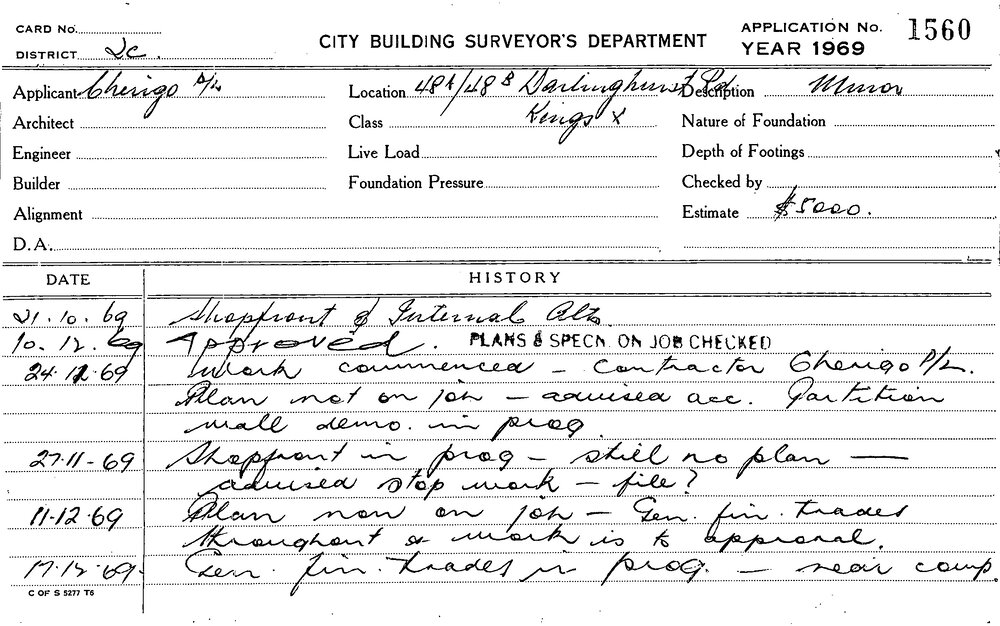 CARD No.
DISTRICT 2c.
CITY BUILDING SURVEYOR'S DEPARTMENT
APPLICATION No. 1560
YEAR 1969
Applicant Cherigo P/L
Location 48A/48B Darlinghurst Rd
Description Minor
Architect
Class Kings X
Nature of Foundation
Engineer
Live Load
Depth of Footings
Builder
Foundation Pressure
Checked by
Alignment
Estimate $5000.
D.A.
DATE HISTORY
21.10.69 Shopfront & Internal Alts.
10.12.69 Approved. PLANS & SPECN. ON JOB CHECKED
24.11.69 Work commenced – Contractor Cherigo P/L.
Plan not on job – advised acc. Partition
wall demo. in prog.
27-11-69 Shopfront in prog – still no plan —
advised stop work – file?
11-12-69 Plan now on job – Gen. fin. trades
throughout & work is to approval.
17.12.69. Gen. fin. trades in prog. – near comp.
C OF S 5277 T6